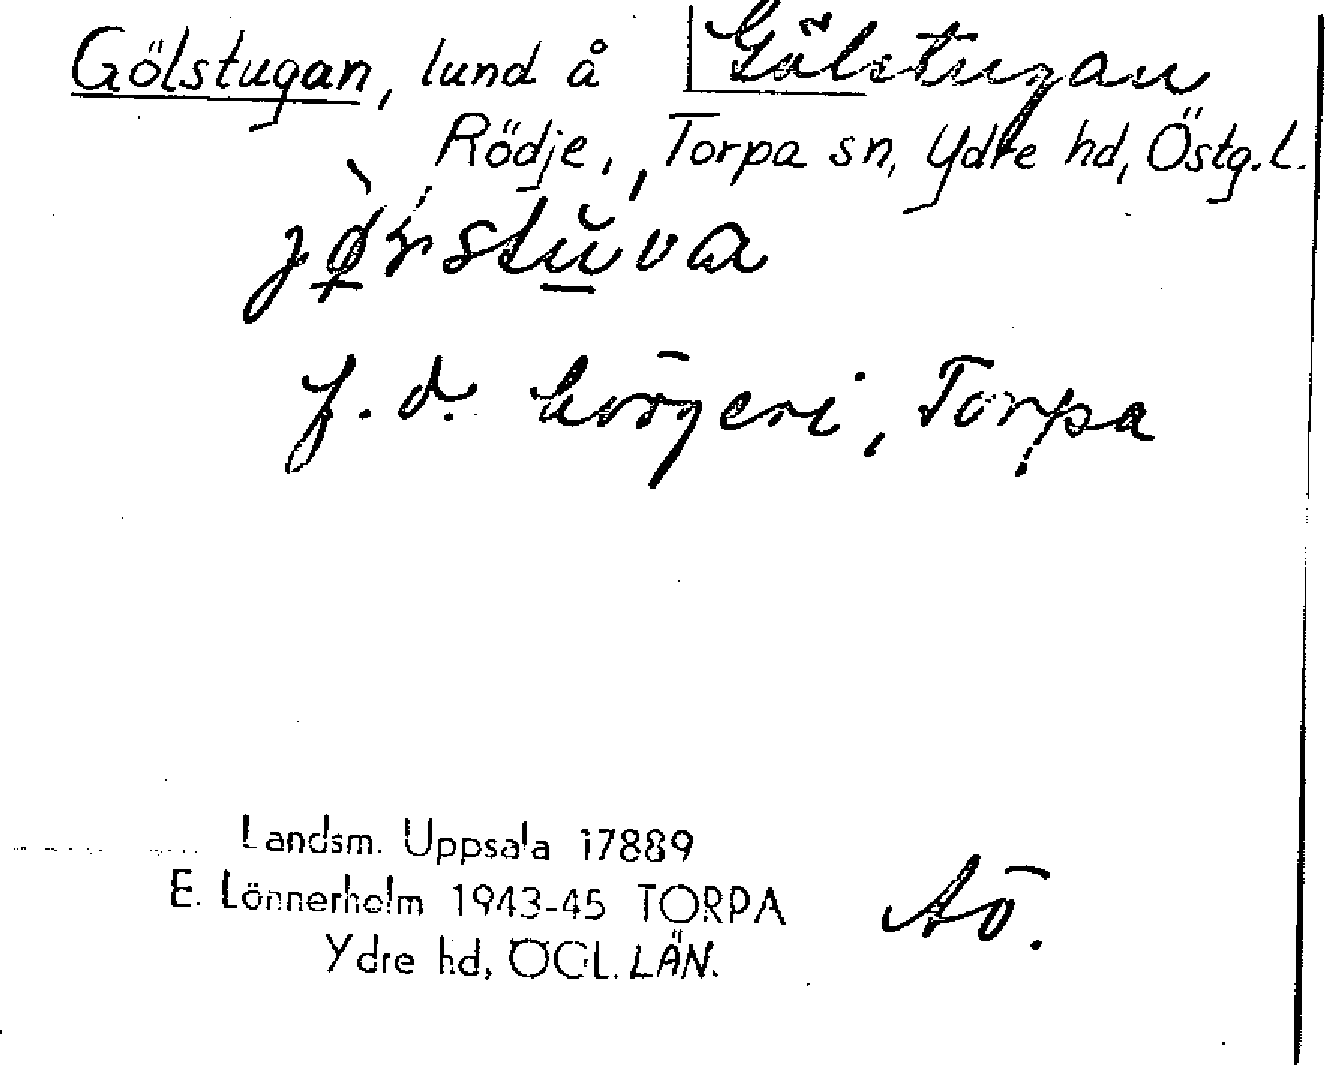 Gölstugan, lund å Gölstugan
Rödje, Torpa sn, Ydre hd, Östg. l.
f. d. krögeri, Torpa
Landsm. Uppsala 17889
E. Lönnerholm 1943-45 TORPA
Ydre hd, ÖGL. LÄN.
Aö.